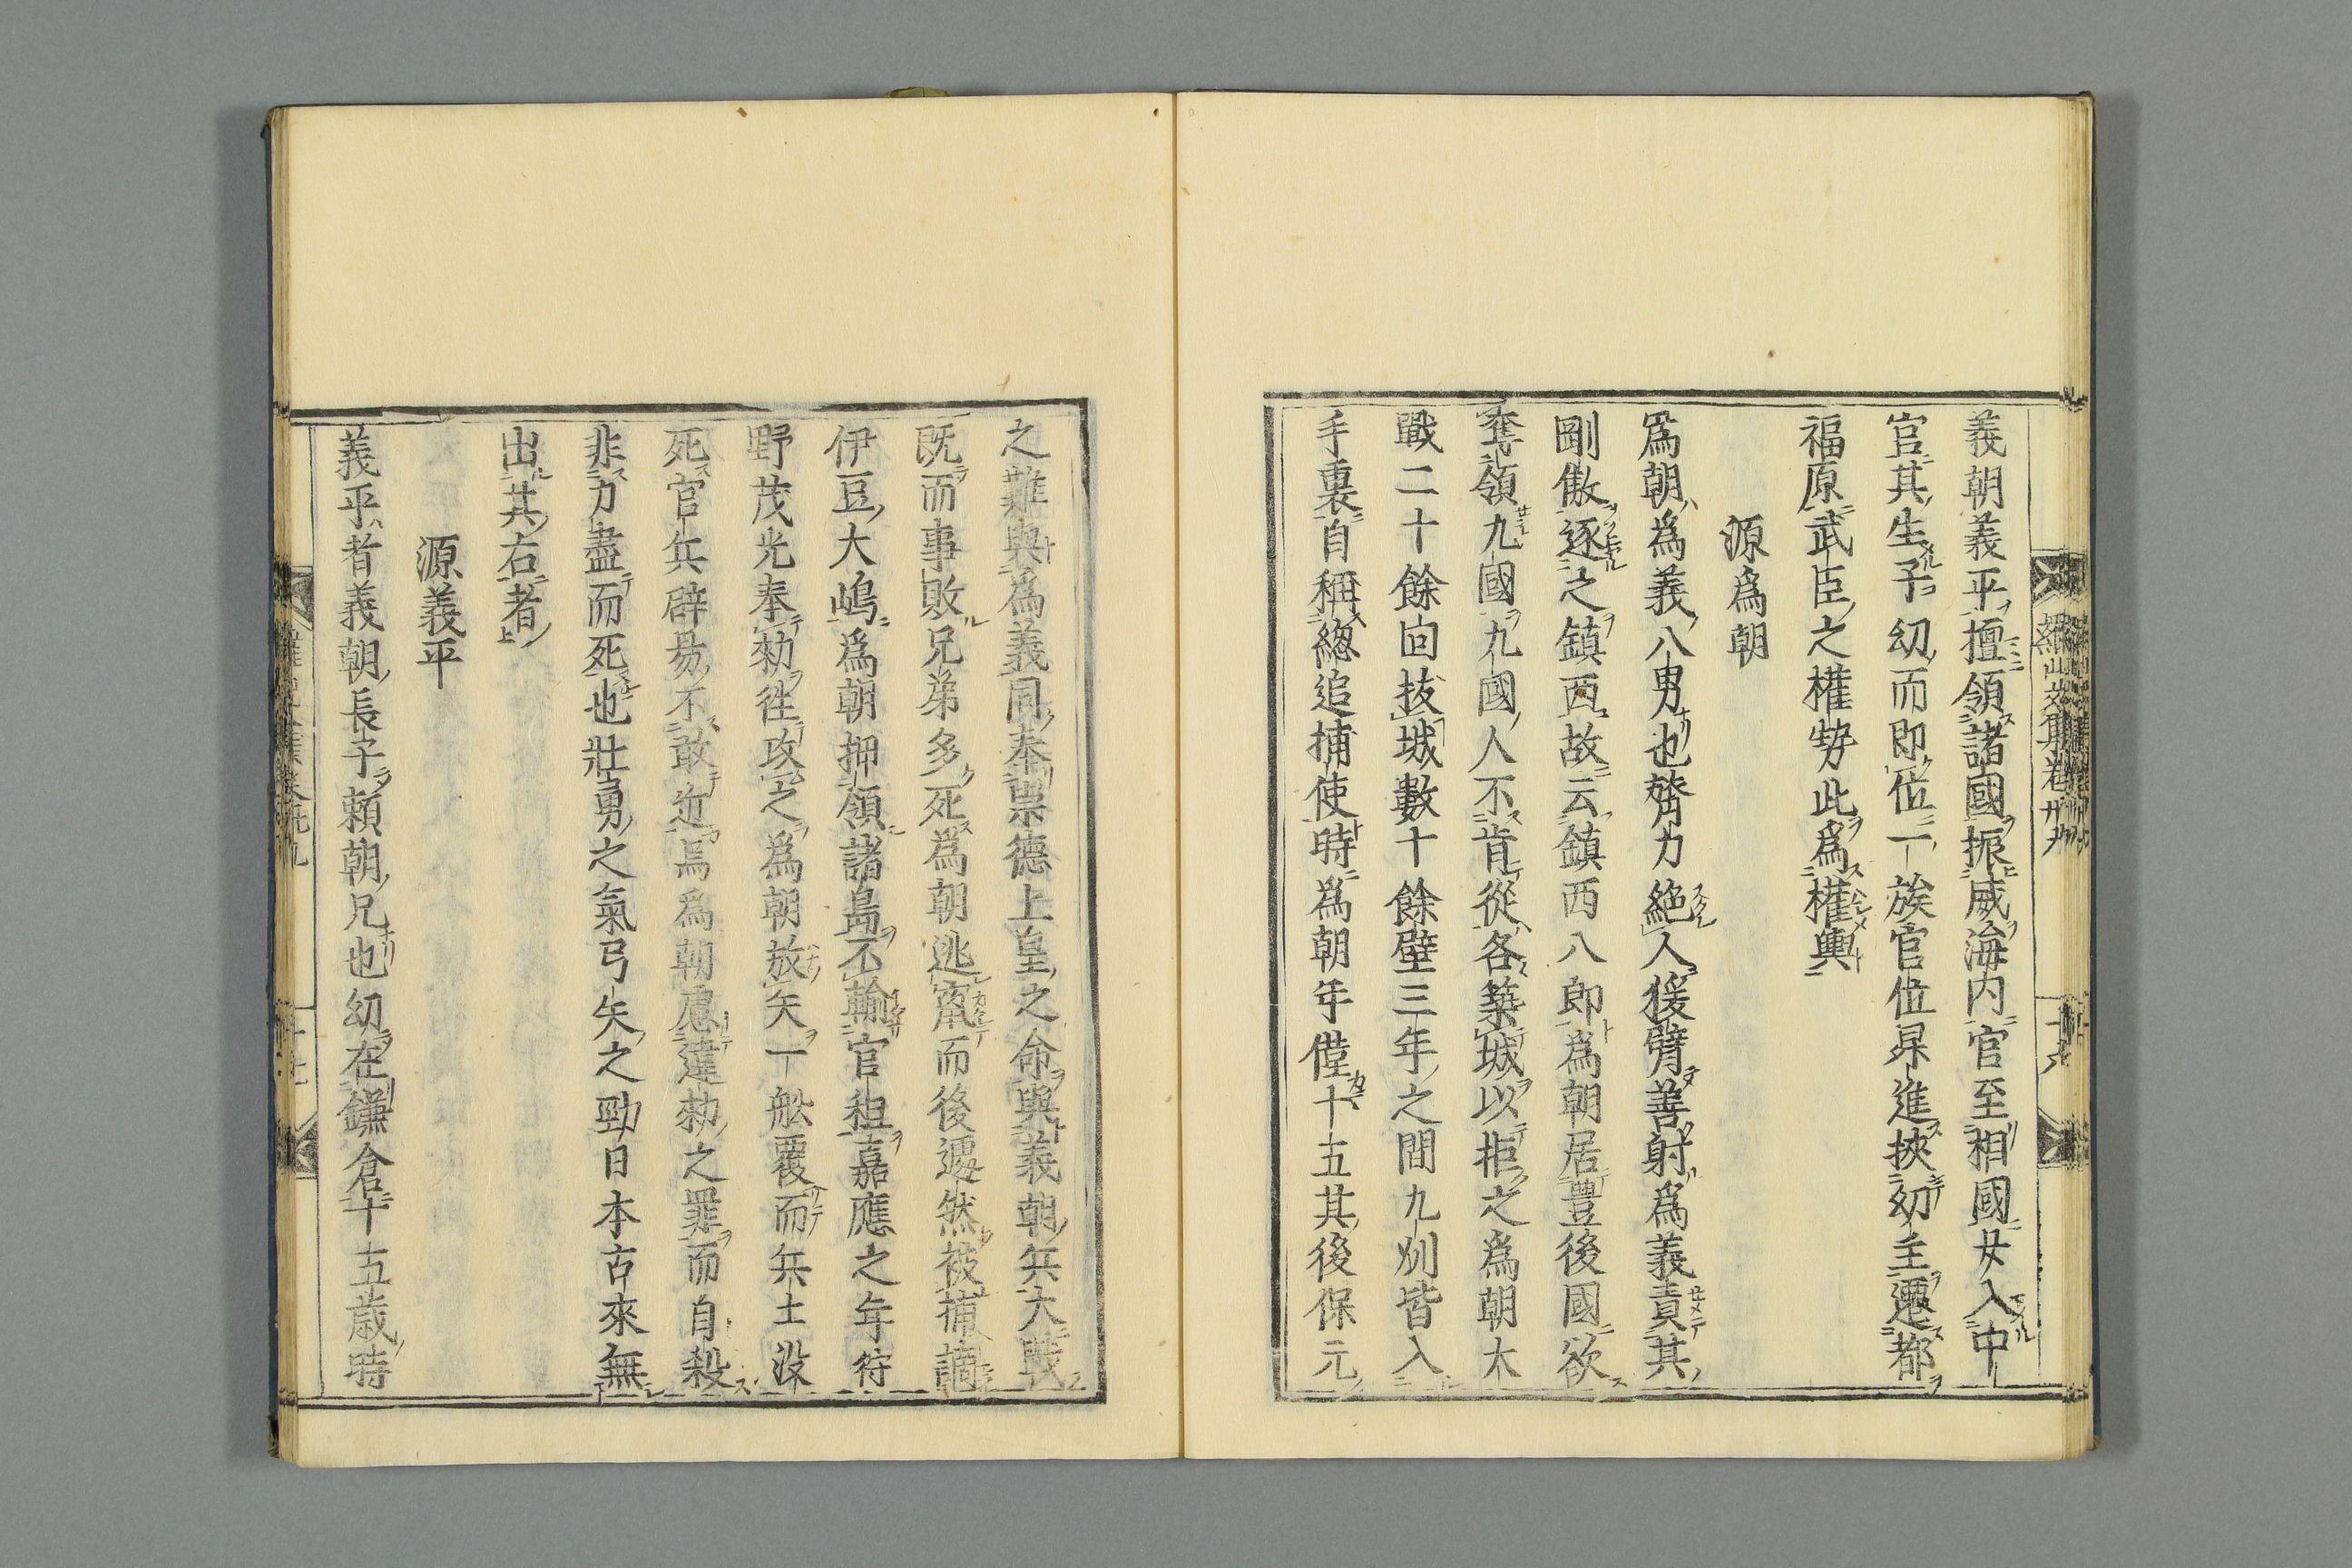 義朝義平擅領諸國振威海内官至相國女入中
官其生子幼而即位一族官位昇進挾幼主遷都
福原武臣之權勢此爲權輿
源爲朝
爲朝爲義八男也膂力絶人猨臂善射爲義責其
剛傲逐之鎮西故云鎮西八郎爲朝居豊後國欲
奪領九國九國人不肯從各築城以拒之爲朝大
戰二十餘囘拔城數十餘壁三年之間九州皆入
手裏自稱總追捕使時爲朝年僅十五其後保元
之難與爲義同奉崇德上皇之命與義朝兵大戰
既而事敗兄弟多死爲朝逃竄而後遽然被捕謫
伊豆大嶋爲朝押領諸島不輸官租嘉應之年狩
野茂光奉勑徃攻之爲朝放矢一舩覆而兵士沒
死官兵辟昜不敢近焉爲朝慮違勑之罪而自殺
非力盡而死也壯勇之氣弓矢之勁日本古來無
出其右者
源義平
義平者義朝長子頼朝兄也幼在鎌倉年十五歳時